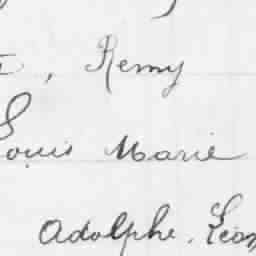 , Remy
Louis Marie
Adolphe. Léon